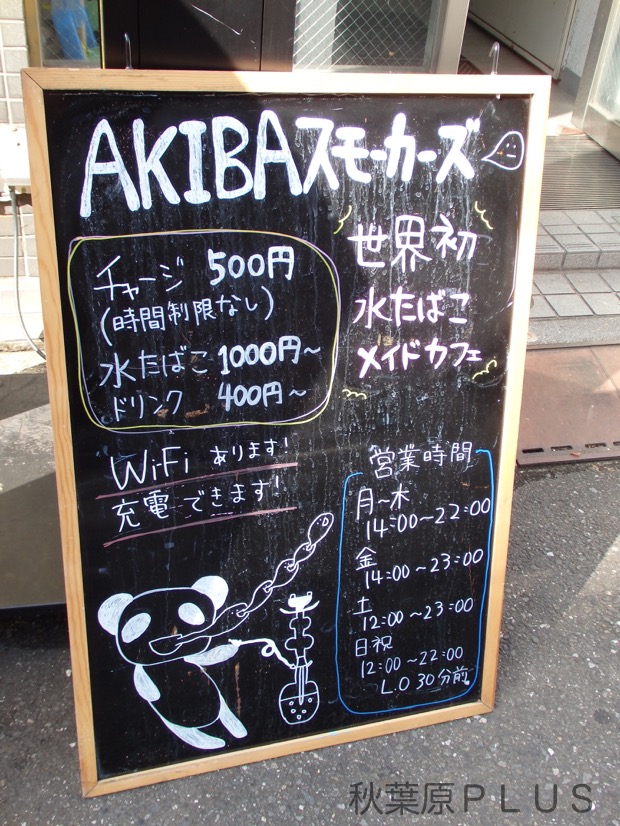 AKIBAスモーカーズ
世界初
水たばこ
メイドカフェ
チャージ 500円
(時間制限なし)
水たばこ 1000円～
ドリンク 400円～
WiFi あります!
充電できます!
営業時間
月～木
14:00～22:00
金
14:00～23:00
土
12:00～23:00
日祝
12:00～22:00
L.O 30分前
秋葉原PLUS